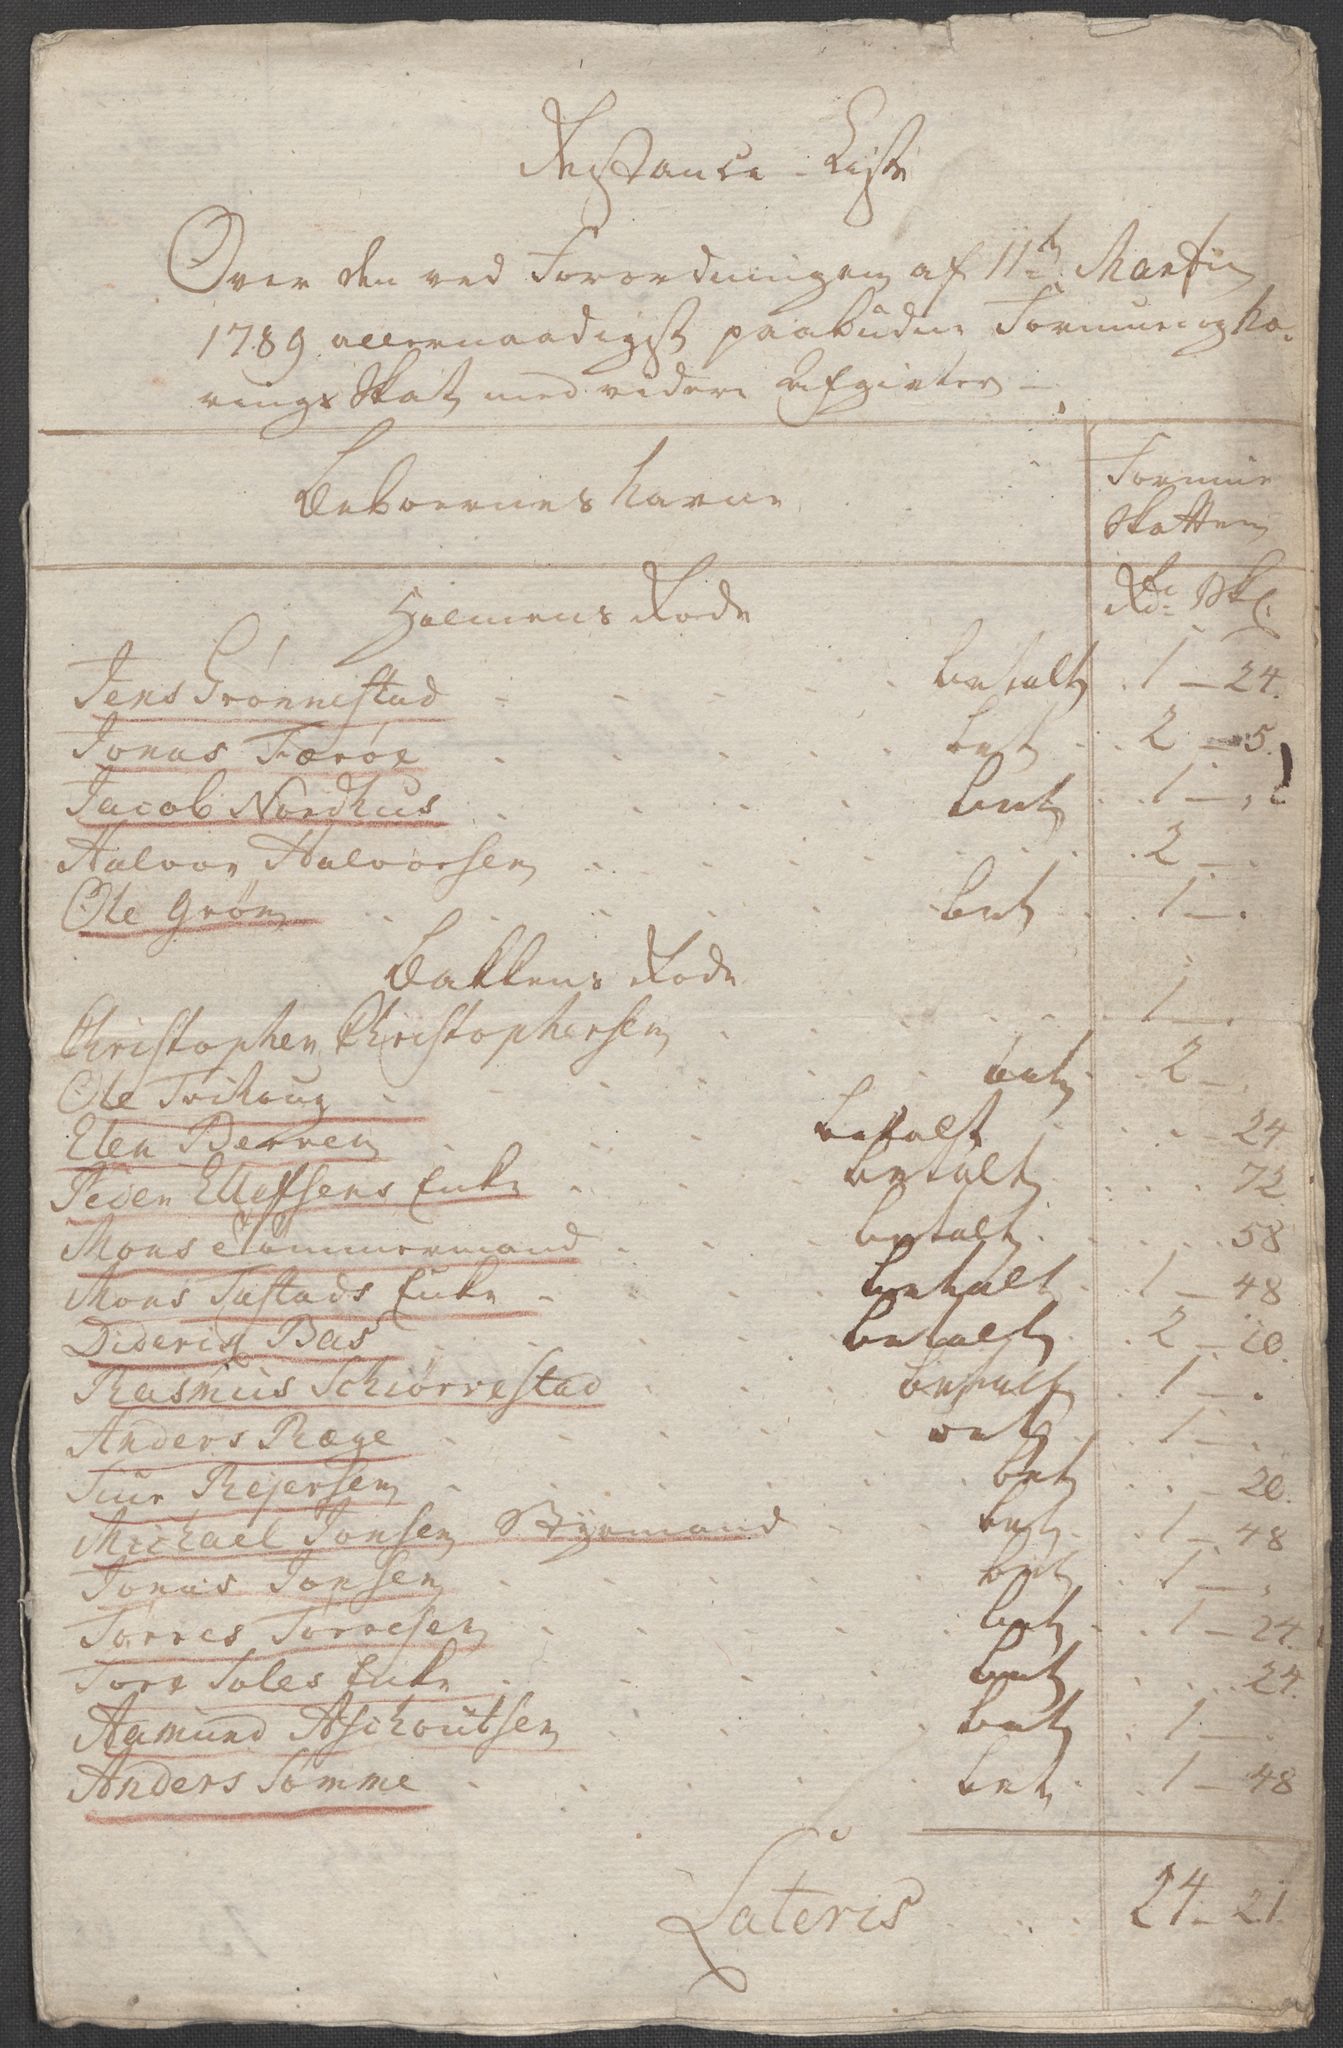 Restance Liste
Over den ved Forordningen af 11te Martii
1789 allernaadigst paabudne Formue og Næ-
rings Skat med videre Afgivter
Beboernes Navne
Formue
Skatten
Rdr Skl.
Holmens Rode
Jens Grønnestad betalt 1 - 24.
Jonas Færøe bet 2 - 5.
Jacob Nordhus bet 1 -
Halvor Halvorsen 2 - .
Ole Grøn bet 1 - .
Bakkens Rode
Christopher Christophersen 1 - .
Ole bet 2 - .
Elen Berven betalt - 24
Peder Ellefsens Enke betalt 72
Mons Tømmermand betalt 58
Mons Tastads Enke betalt 1 - 48
Diderik Bas betalt 2 - 10.
Rasmus Schiørrestad betalt 1 - .
Anders Ræge bet 1 - .
Tuur Rejersen bet - 20.
Michael Jonsen Byemand bet 1 - 48
Jonas Jonsen bet 1 -
Torres Torresen bet 1 - 24.
Tore Soles Enke bet 24.
Aamund Aschoutsen bet 1 - .
Anders Sømme bet 1 - 48
Lateris 24 - 21.